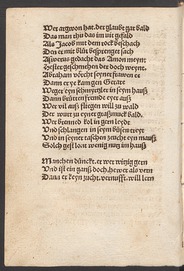 Wer argwon hat, der glaubt gar bald
Das man thu das im nit gefall
Als Jacob mit dem rock beschach
Den er mit blůt besprenget sach
Aswerus gedacht das Amon meynt
Hester geschehenden die doch weynt
Abraham vörcht seyner frawen ee
Dann er ye kam gen Gerare
Weger eyn schnytzler in seym hauß
Dann brütten frembde eyer auß
Wer vil auß fliegen will zu wald
Der wurt zu eyner graßmuck bald.
Wer brennend kol in geren leydt
Und schlangen in sym bůsen treyt
Und in seyner taschen zeucht eyn mauß
Solch gest lont wenig nutz im hauß
Manchen dünckt, er wer witzig gern
Und ist ein ganß doch, hewer als vern
Dann er keyn zucht, vernufft, will lern